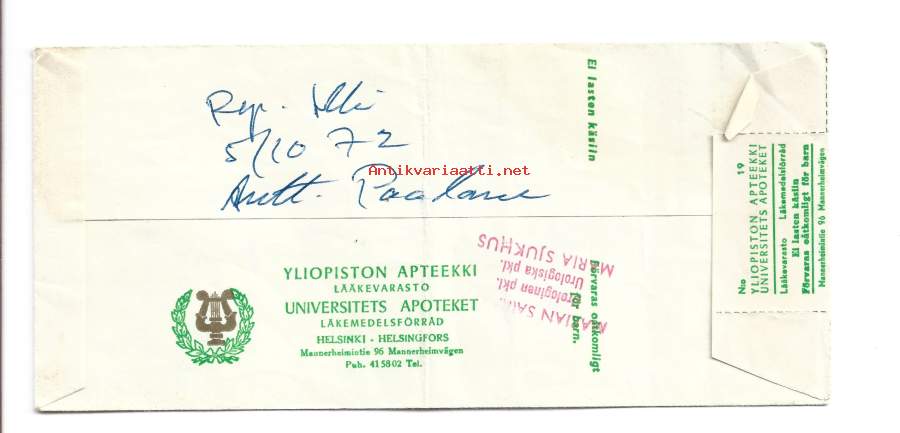 Rep. Hki
5/10 72
Antt. Paalane
Antikvariaatti.net
Ei lasten käsiin
Förvaras oåtkomligt
för barn.
MARIAN SAIR.
Urologinen pkl.
Urologiska pkl.
MARIA SJUKHUS
YLIOPISTON APTEEKKI
LÄÄKEVARASTO
UNIVERSITETS APOTEKET
LÄKEMEDELSFÖRRÅD
HELSINKI - HELSINGFORS
Mannerheimintie 96 Mannerheimvägen
Puh. 41 58 02 Tel.
N:o 19
YLIOPISTON APTEEKKI
UNIVERSITETS APOTEKET
Lääkevarasto Läkemedelsförråd
Ei lasten käsiin
Förvaras oåtkomligt för barn
Mannerheimintie 96 Mannerheimvägen